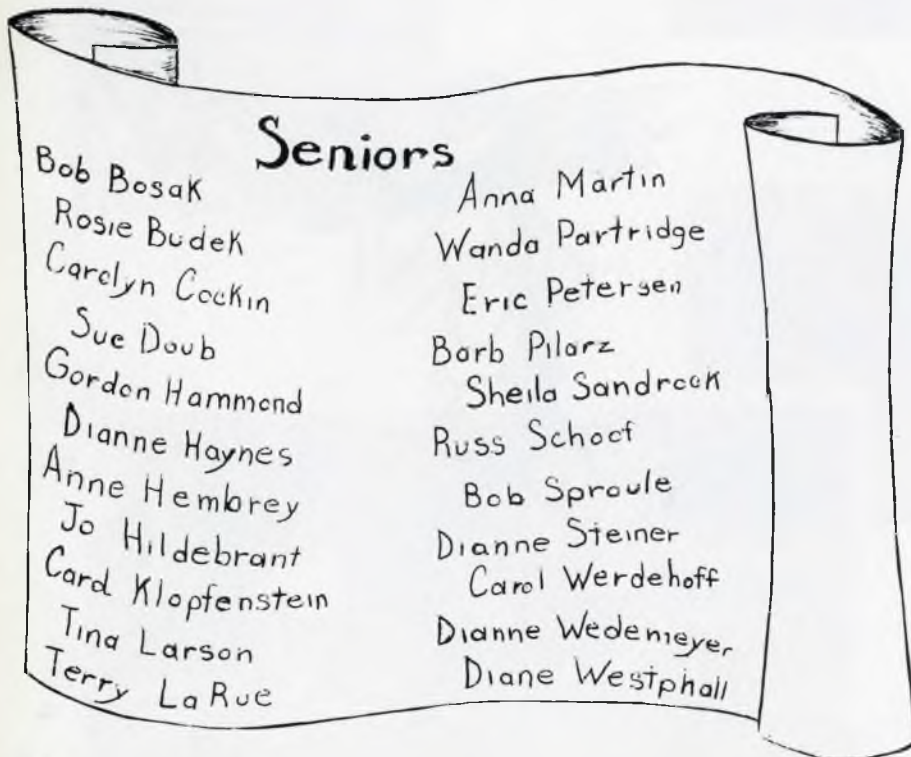 Seniors
Bob Bosak
Rosie Budek
Carolyn Cockin
Sue Doub
Gordon Hammond
Dianne Haynes
Anne Hembrey
Jo Hildebrant
Carol Klopfenstein
Tina Larson
Terry LaRue
Anna Martin
Wanda Partridge
Eric Petersen
Barb Pilarz
Sheila Sandrock
Russ Schoof
Bob Sproule
Dianne Steiner
Carol Werdehoff
Dianne Wedemeyer
Diane Westphall